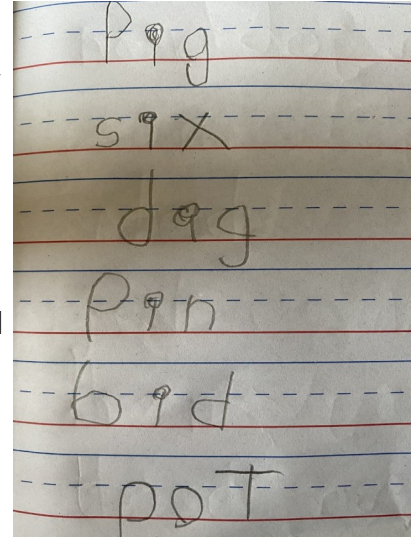 Pig
six
dig
Pin
bid
poT